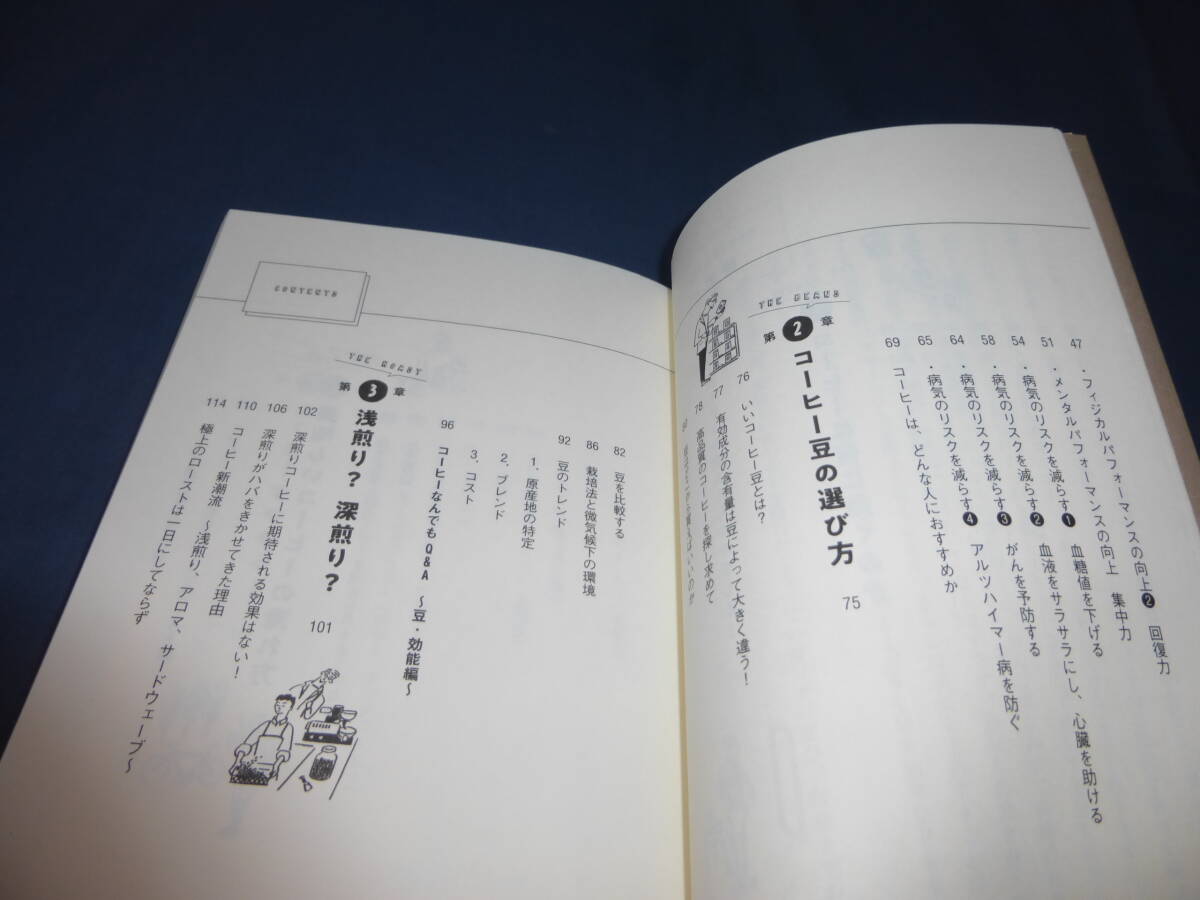 47 ・フィジカルパフォーマンスの向上❷ 回復力
51 ・メンタルパフォーマンスの向上 集中力
54 ・病気のリスクを減らす❶ 血糖値を下げる
58 ・病気のリスクを減らす❷ 血液をサラサラにし、心臓を助ける
64 ・病気のリスクを減らす❸ がんを予防する
65 ・病気のリスクを減らす❹ アルツハイマー病を防ぐ
69 コーヒーは、どんな人におすすめか
THE BEANS
第2章 コーヒー豆の選び方 75
76 いいコーヒー豆とは?
77 有効成分の含有量は豆によって大きく違う!
78 高品質のコーヒーを探し求めて
CONTENTS
82 豆を比較する
86 栽培法と微気候下の環境
92 豆のトレンド
1、原産地の特定
2、ブレンド
3、コスト
96 コーヒーなんでもQ&A 〜豆・効能編〜
THE ROAST
第3章 浅煎り? 深煎り? 101
102 深煎りコーヒーに期待される効果はない!
106 深煎りがハバをきかせてきた理由
110 コーヒー新潮流 〜浅煎り、アロマ、サードウェーブ〜
114 極上のローストは一日にしてならず